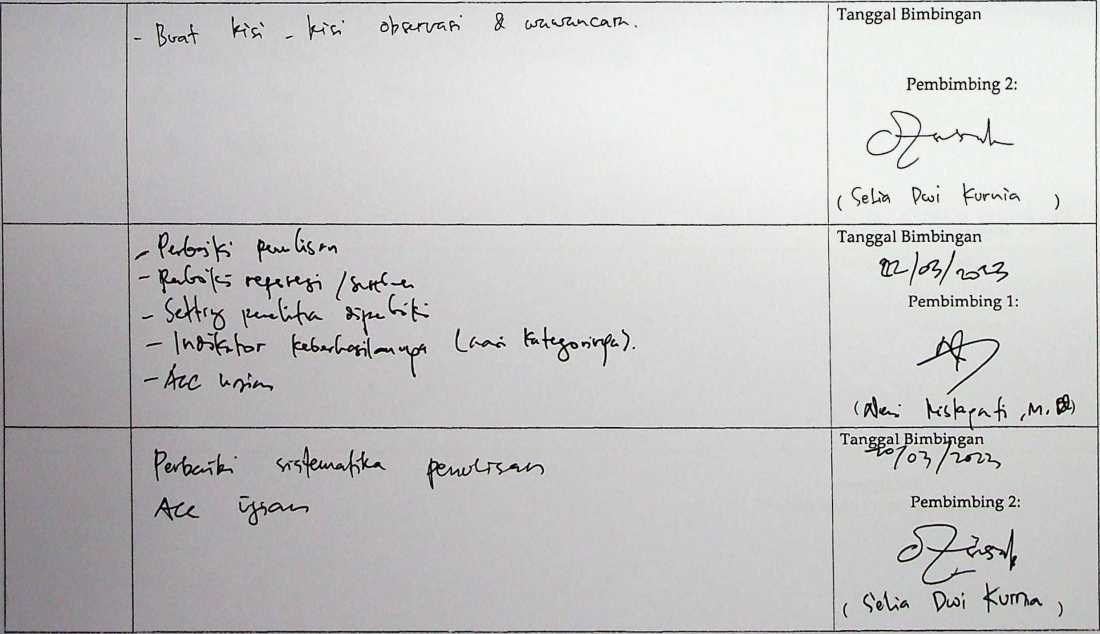 - Buat kisi - kisi observasi & wawancara.
Tanggal Bimbingan
Pembimbing 2:
( Selia Dwi Kurnia )
- Perbaiki penulisan
- Perbaiki referensi / sumber
- Setting penelitian diperbaiki
- Indikator keberhasilannya (cari kategorinya).
- Acc ujian
Tanggal Bimbingan
22/03/2023
Pembimbing 1:
Perbaiki sistematika penulisan
Acc ujian
Tanggal Bimbingan
/03/2023
Pembimbing 2:
( Selia Dwi Kurnia )